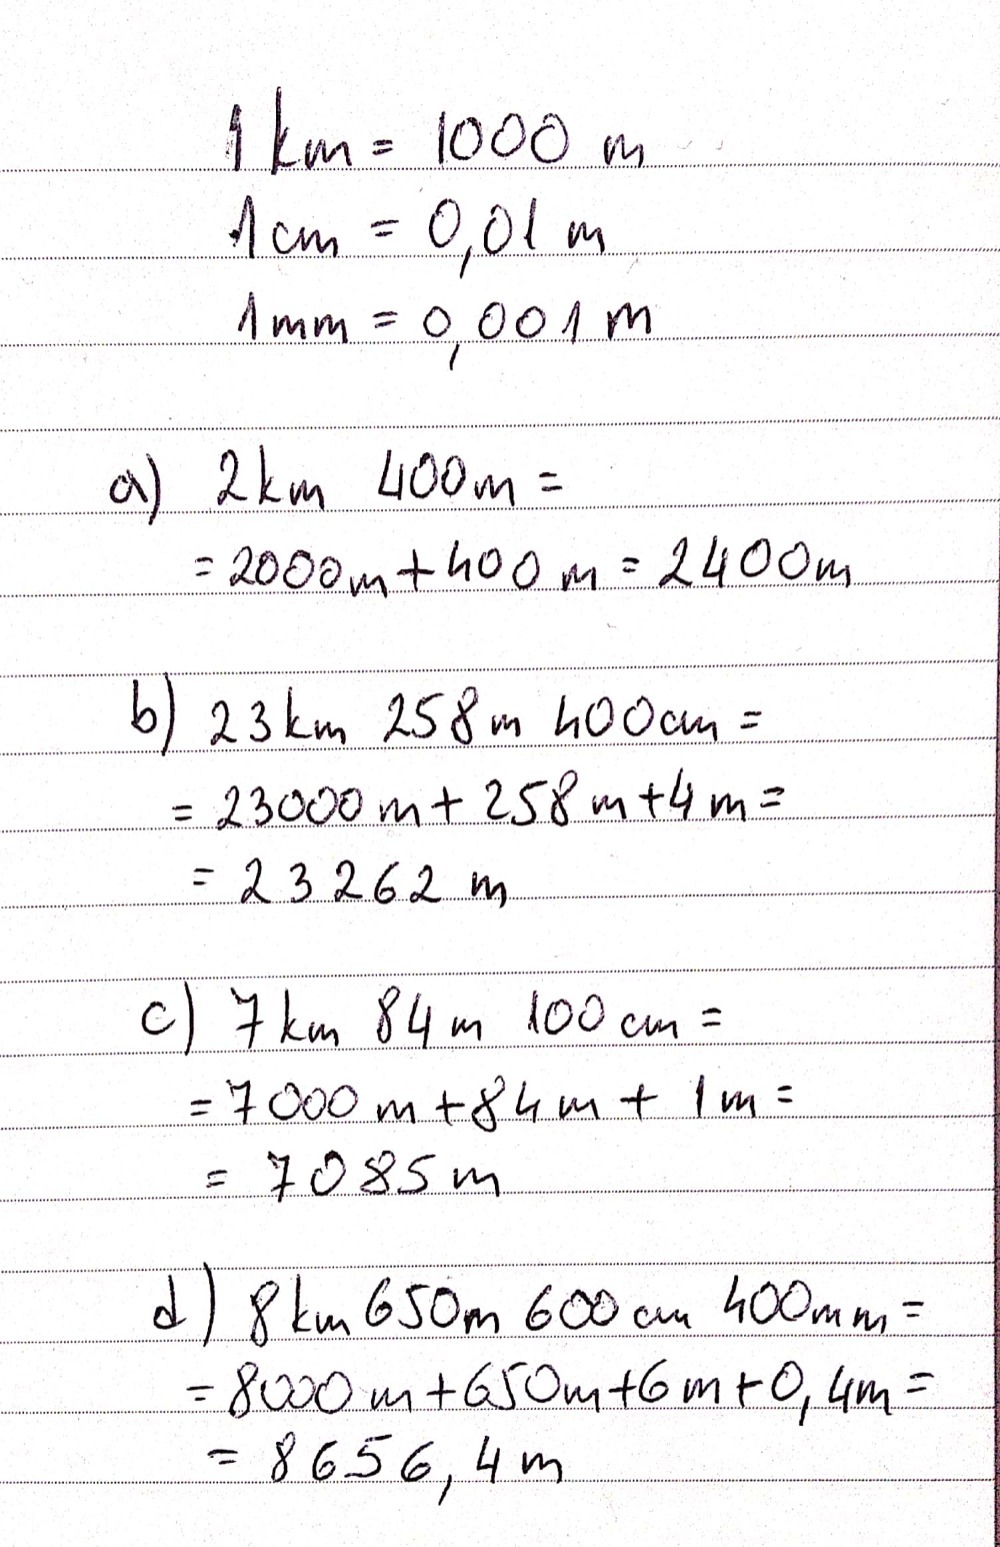 1 km = 1000 m
1 cm = 0,01 m
1 mm = 0,001 m
a) 2 km 400 m =
= 2000 m + 400 m = 2400 m
b) 23 km 258 m 400 cm =
= 23000 m + 258 m + 4 m =
= 23262 m
c) 7 km 84 m 100 cm =
= 7000 m + 84 m + 1 m =
= 7085 m
d) 8 km 650 m 600 cm 400 mm =
= 8000 m + 650 m + 6 m + 0,4 m =
= 8656,4 m